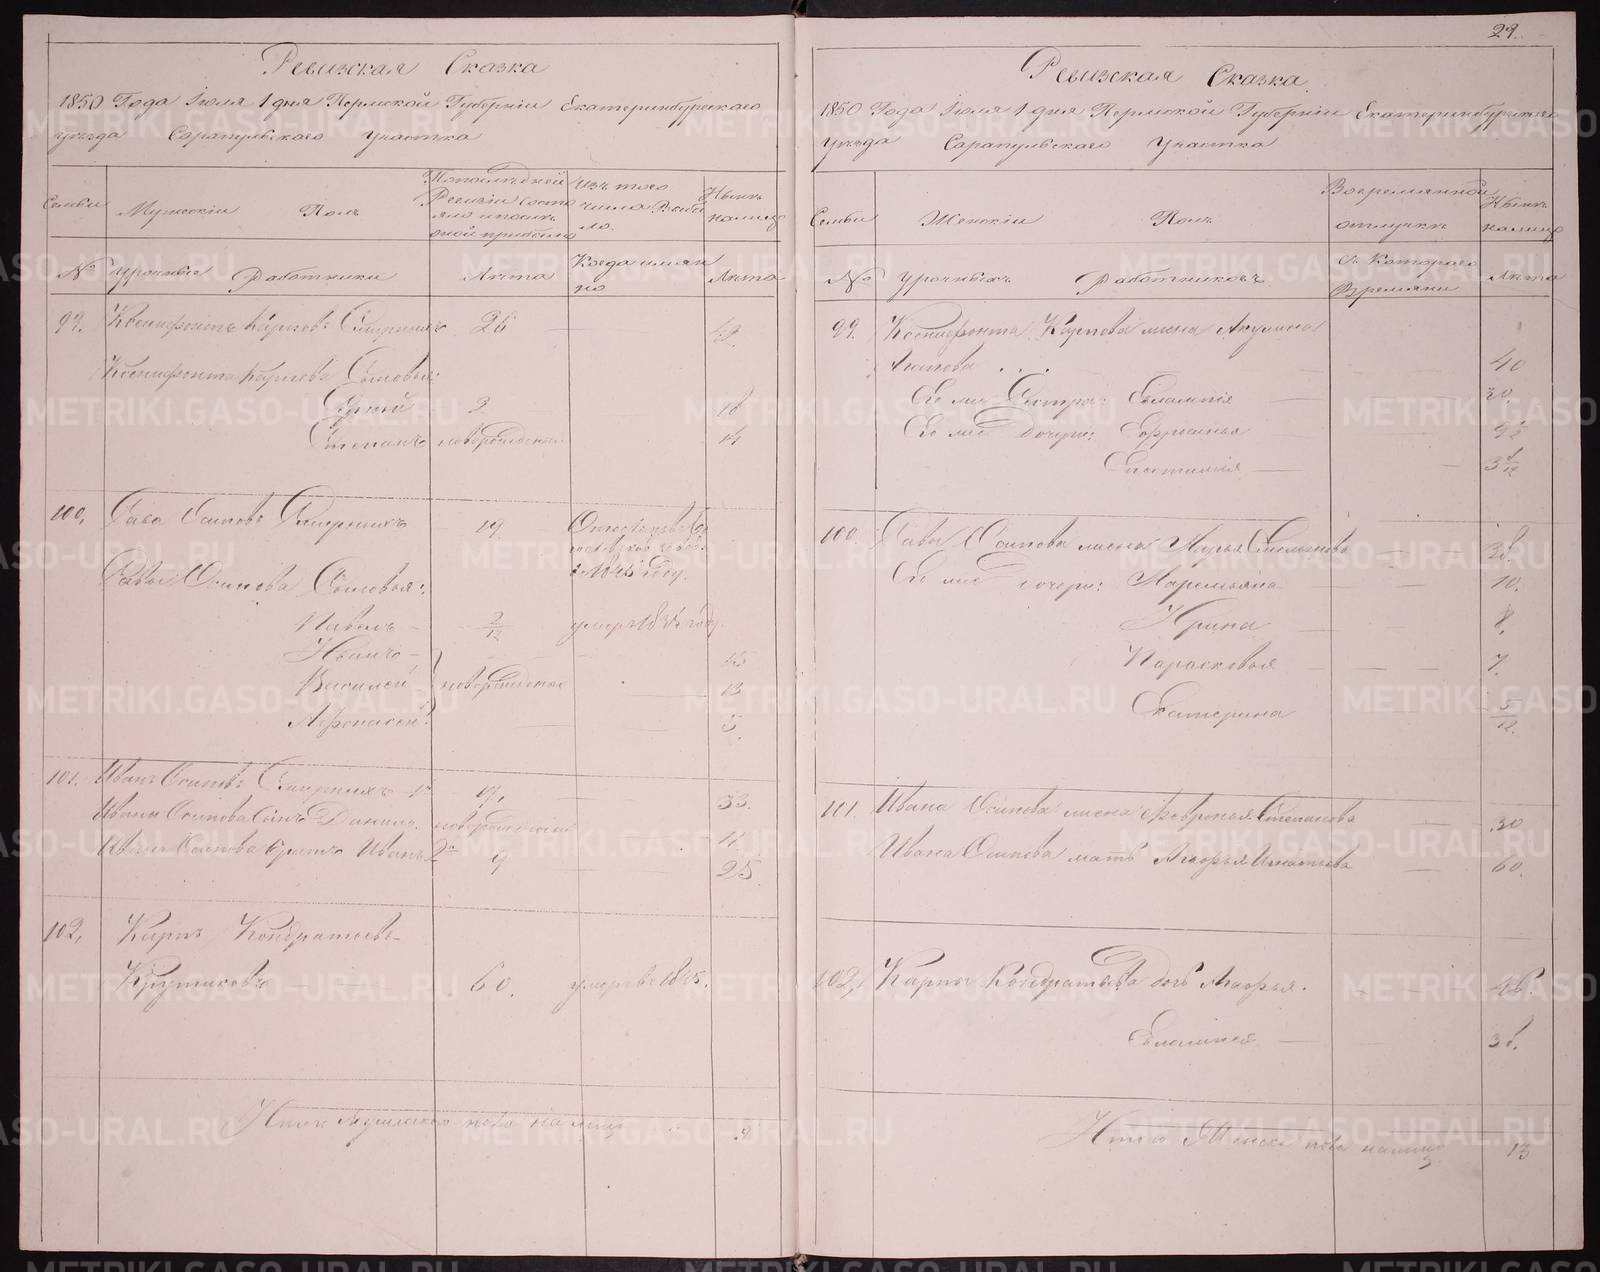 29.
Ревизская Сказка
1850 Года Іюля 1 дня Пермской Губерніи Екатеринбургскаго
уѣзда Сарапульскаго Участка
Семьи
Мужескій Полъ
Последней Ревизіи Состо
яло и после
оной прибыло
Изъ того
числа выбы
ло.
Нынѣ
налицо
№
Урочные Работники
Лѣта
Когда имян
но
Лѣта
99. Ксенофонтъ Карповъ Смирныхъ 26 42
Ксенофонта Карпова Сыновья:
Сергей 3 18
Степанъ новорожденный 14
100, Сава Осиповъ Смирныхъ 19
в 1845 году.
Савы Осипова Сыновья:
Павелъ 2/12 умеръ году.
Иванъ 15
Василей новорожденные 13
Афонасей 5
101. Иванъ Осиповъ Смирныхъ 1й 17, 33.
Ивана Осипова Сынъ Данило новорожденный 11
Ивана Осипова братъ Иванъ 2й 9 25.
102, Карпъ Кондратьевъ
Крутиковъ 60. умеръ 1845.
Итого мужеска пола на лицо 9
Ревизская Сказка.
1850 Года Іюля 1 дня Пермской Губерніи Екатеринбургскаго
Уѣзда Сарапульскаго Участка
Семьи
Женскій Полъ
Во временной
отлучке
Нынѣ
налицо
№
Урочныхъ Работниковъ.
съ Котораго
Времяни
Лѣта
99. Ксенофонта Карпова жена Акулина
40
Его же Сестра: Евлампія 30.
Его же дочери: Ефросинья
3 8/12
100. Савы Осипова жена Марья Семенова 38.
Его же дочери: Маремьяна 10.
Ирина 8,
Парасковья 7.
Екатерина 5/12.
101. Ивана Осипова жена Февронья Степанова 30
Ивана Осипова мать Марья Игнатьева 60.
102, Карпа Кондратьева дочь Марья. 46.
Евлампея 38.
Итого Женска пола налицо 13
METRIKI.GASO-URAL.RU